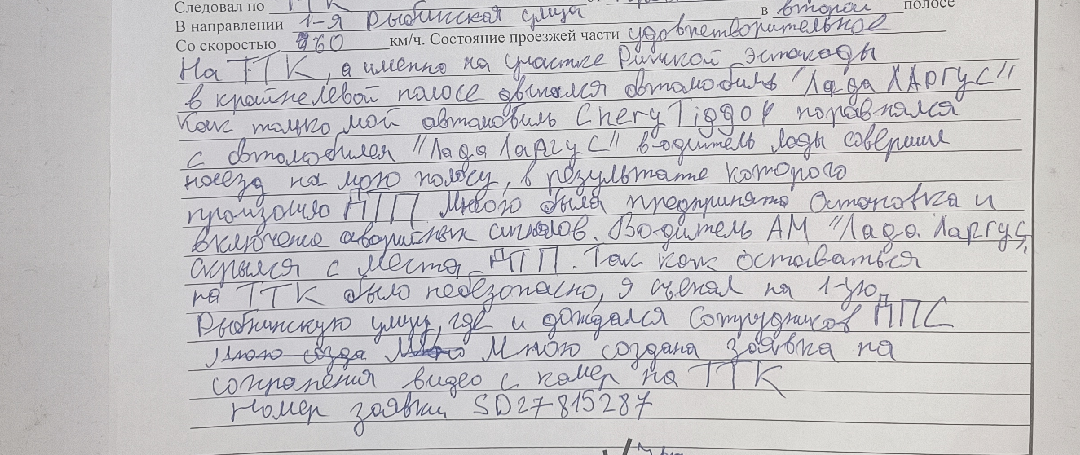 Следовал по ТТК
В направлении 1-я Рыбинская улица в второй полосе
Со скоростью 60 км/ч. Состояние проезжей части удовлетворительное
На ТТК, а именно на участке Рижской эстокады
в крайнелевой полосе двигался автомобиль "Лада ЛАргус"
Как только мой автомобиль Chery Tiggo поравнялся
с автомобилем "Лада Ларгус" водитель лады совершил
наезд на мою полосу, в результате которого
произошло ДТП Мною была предпринята Остановка и
включение аварийных сигналов. Водитель АМ "Лада Ларгус"
скрылся с места ДТП. Так как оставаться
на ТТК было небезопасно, я съехал на 1-ую
Рыбинскую улицу, где и дождался сотрудников ДПС
Мною созда Мною Мною создана заявка на
сохранения видео с камер на ТТК
Номер заявки SD27815287